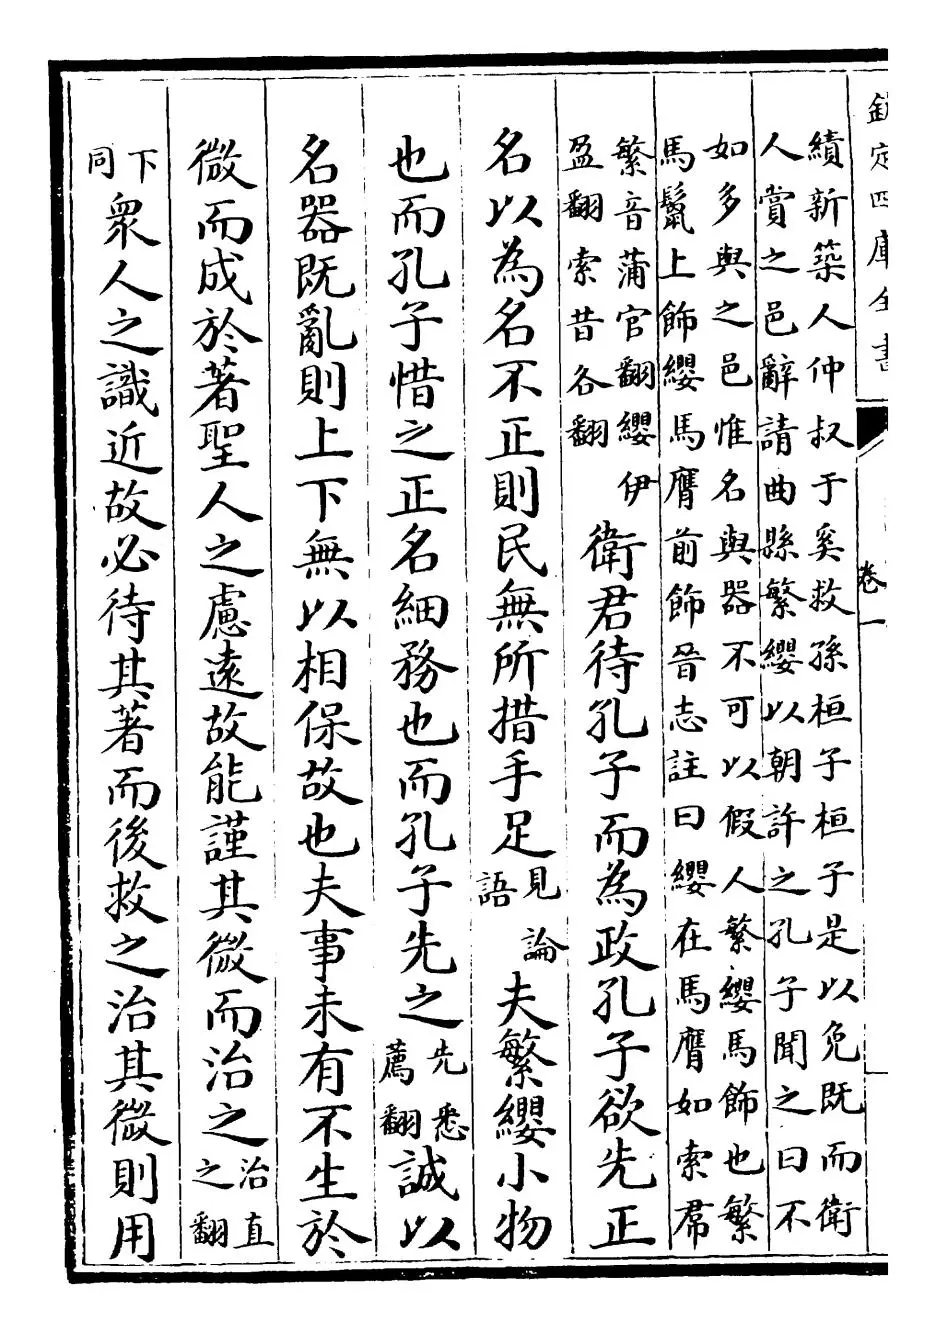 欽定四庫全書
卷一
績新築人仲叔于奚救孫桓子桓子是以免既而衛
人賞之邑辭請曲縣繁纓以朝許之孔子聞之曰不
如多與之邑惟名與器不可以假人繁纓馬飾也繁
馬鬣上飾纓馬膺前飾晉志註曰纓在馬膺如索帬
繁音蒲官翻纓伊盈翻索昔各翻衛君待孔子而為政孔子欲先正
名以為名不正則民無所措手足見論語夫繁纓小物
也而孔子惜之正名細務也而孔子先之先悉薦翻誠以
名器既亂則上下無以相保故也夫事未有不生於
微而成於著聖人之慮遠故能謹其微而治之治直之翻
下同衆人之識近故必待其著而後救之治其微則用